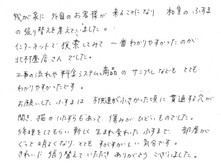 我が家に外国のお客様が来ることになり 和室のふすま
の張り替えを考えていました。
インターネットで検索してみて 一番わかりやすかったのが
北村畳店さんでした。
工事の流れや料金システム、商品のサンプルなども とても
わかりやすかったです。
お願いしたふすまは 子供達が小さかった頃に貫通する穴が
開き、猫のいたずらもあって 傷みがひどいものでした。
張り替えてもらい 新しく生まれ変わったふすまで、部屋が
ぐっと明るくなり とても すがすがしい気分です。
きれいに張り替えていただき ありがとうございました。